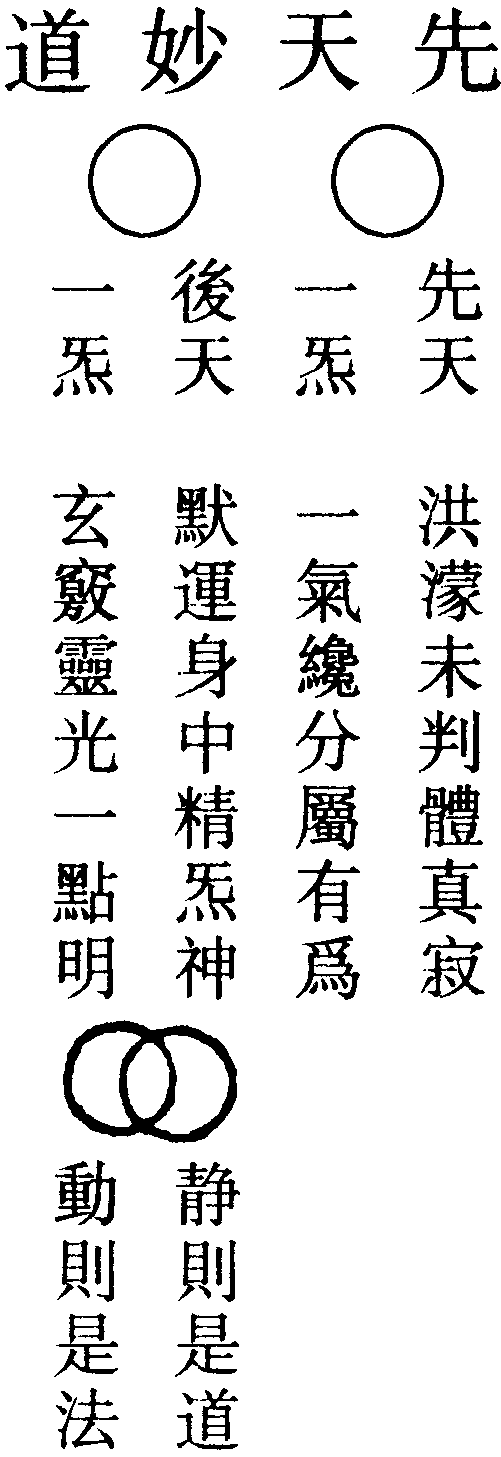 先天妙道
先天
一炁
後天
一炁
洪濛未判體真寂
一氣纔分屬有爲
默運身中精炁神
玄竅靈光一點明
静則是道
動則是法